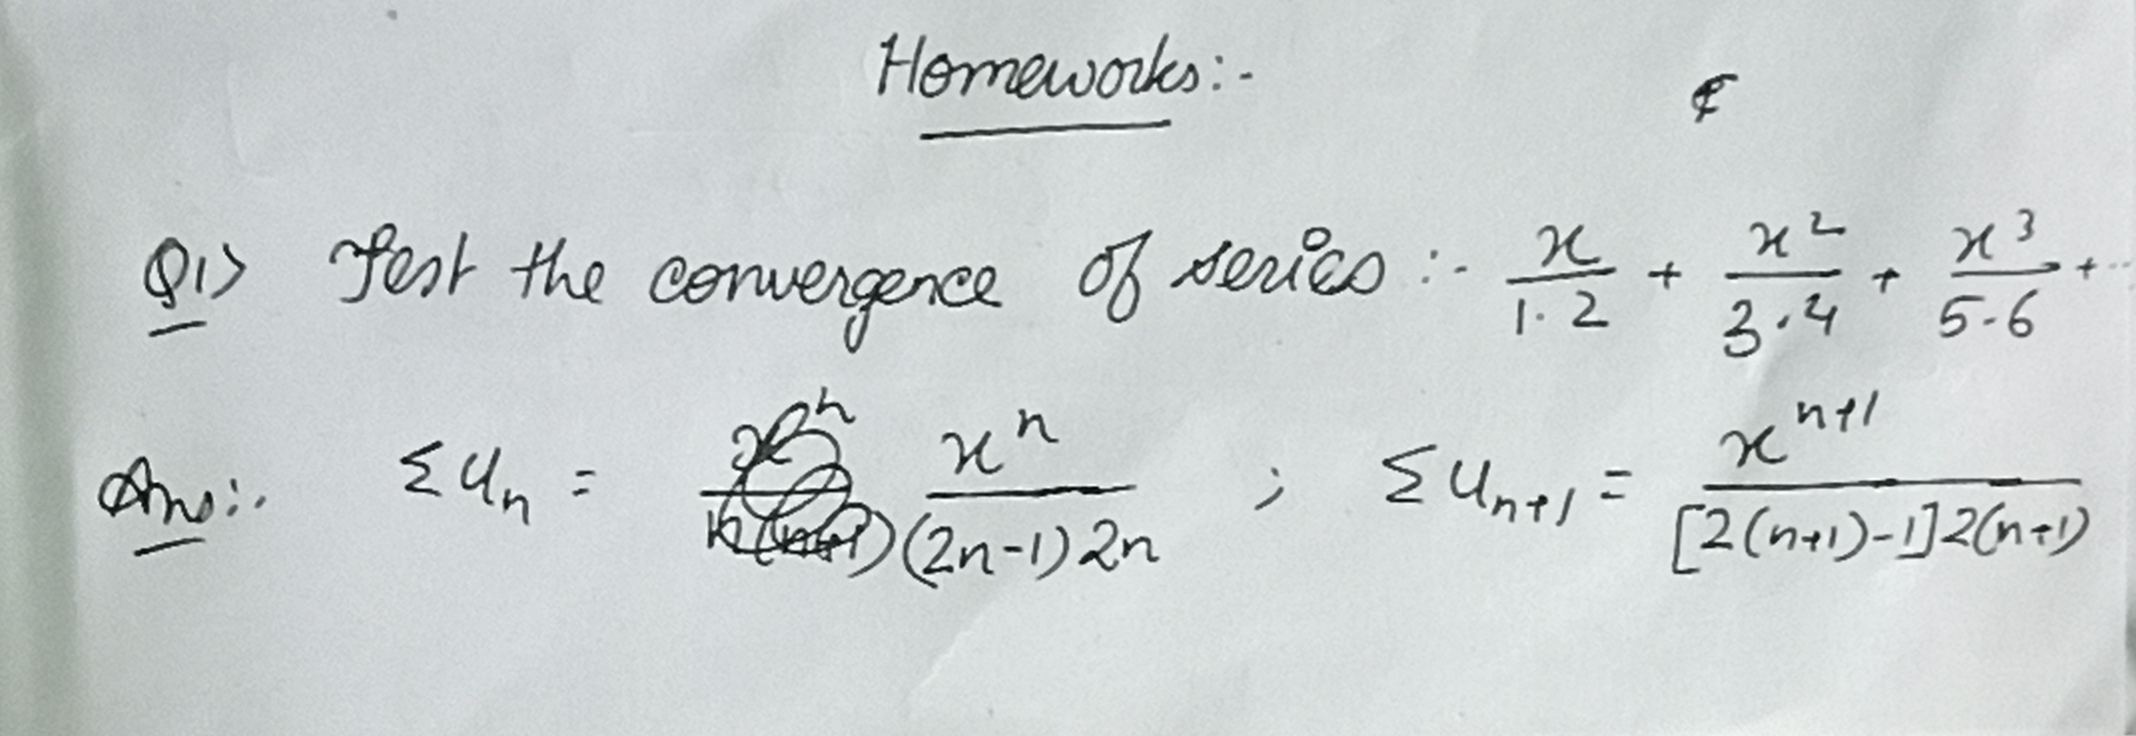 Homeworks:-
Q1> Test the convergence of series :- x/1·2 + x²/3·4 + x³/5·6 + ...
Ans:- Σuₙ = xⁿ/(2n-1)2n ; Σuₙ₊₁ = xⁿ⁺¹/[2(n+1)-1]2(n+1)